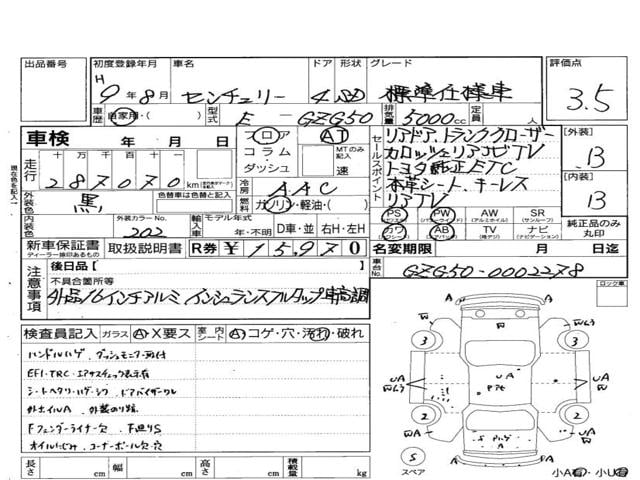 出品番号
初度登録年月
車名
ドア 形状
グレード
評価点
H 9年8月
センチュリー
4
標準仕様車
3.5
車歴
自家用・( )
型式
E - GZG50
排気量
5000cc
定員
人
車検 年 月 日
走行
十万 万 千 百 十
287070 km
フロア コラム・ダッシュ
AT
MTのみ記入
速
セールスポイント
リアドア,トランククローザー
カロッツェリアナビTV
トヨタ純正ETC
本革シート、キーレス
リアTV
【外装】
B
【内装】
B
外装色
黒
色替車は色替と記入
冷房
AAC
燃料
ガソリン・軽油・( )
内装色
外装カラーNo.
202
輸入車
モデル年式
年・不明
D車・並
右H・左H
PS PW AW SR
(パワーウインドウ) (アルミホイル) (サンルーフ)
カワ AB TV ナビ
(エアバッグ)
純正品のみ丸印
新車保証書
ディーラー捺印あるもの
取扱説明書
R券
¥15970
名変期限 月 日迄
注意事項
後日品【 】
不具合箇所等
外品16インチアルミ インシュランスフルタップ車高調
車台No.
GZG50-0002278
ロック車
検査員記入
ガラス
A・X要ス
室内シート
A・コゲ・穴・汚れ・破れ
ハンドルハゲ、ダッシュモニター取付
EFI・TRC・エアサスチェック表示有
シートヘタリ・ハゲ・シワ ドアバイザーワレ
外ホイルA
Fフェンダーライナー欠 下廻りS
オイルにじみ、コーナーポール欠・穴
長さ cm 幅 cm 高さ cm 積載量 kg
A
W
3
3
2
2
S
スペア
小A有・小U有
現在色を記入→